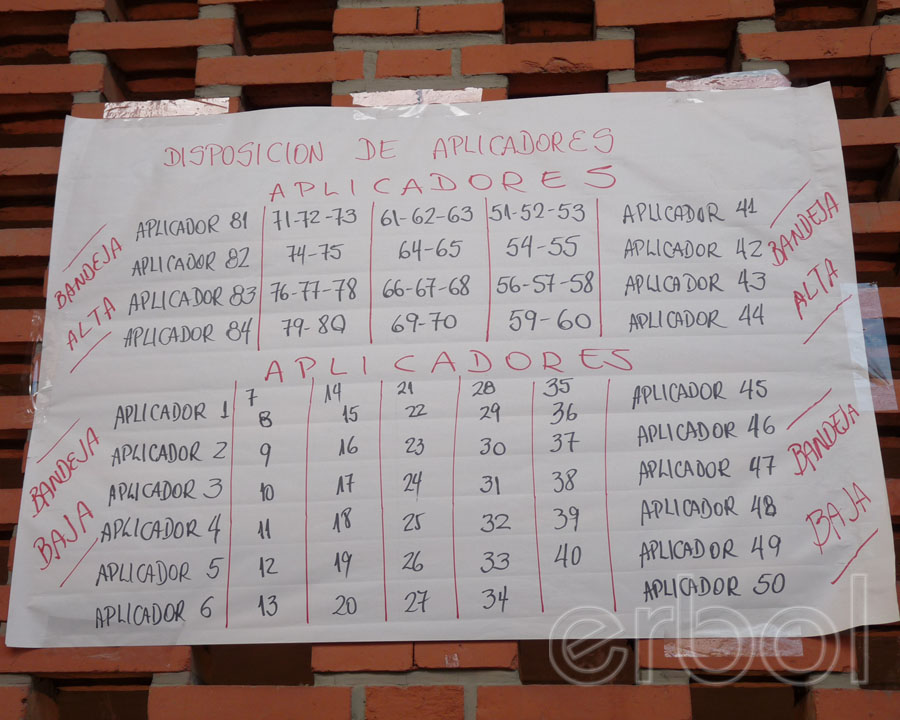 DISPOSICION DE APLICADORES
APLICADORES
BANDEJA ALTA
APLICADOR 81 71-72-73 61-62-63 51-52-53 APLICADOR 41
APLICADOR 82 74-75 64-65 54-55 APLICADOR 42
APLICADOR 83 76-77-78 66-67-68 56-57-58 APLICADOR 43
APLICADOR 84 79-80 69-70 59-60 APLICADOR 44
BANDEJA ALTA
APLICADORES
BANDEJA BAJA
7 14 21 28 35 APLICADOR 45
APLICADOR 1 8 15 22 29 36 APLICADOR 46
APLICADOR 2 9 16 23 30 37 APLICADOR 47
APLICADOR 3 10 17 24 31 38 APLICADOR 48
APLICADOR 4 11 18 25 32 39 APLICADOR 49
APLICADOR 5 12 19 26 33 40 APLICADOR 50
APLICADOR 6 13 20 27 34
BANDEJA BAJA
erbol